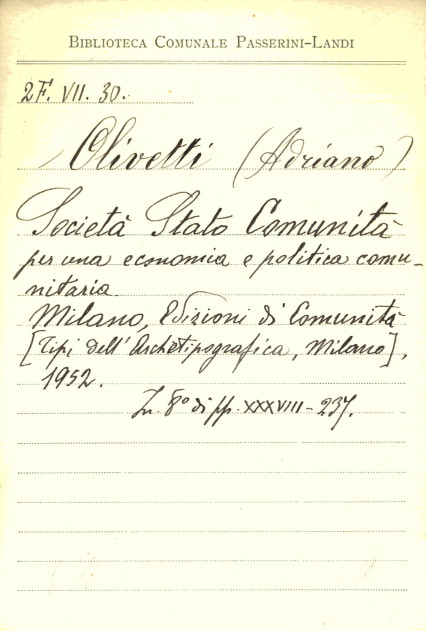 BIBLIOTECA COMUNALE PASSERINI-LANDI
2F. VII. 30.
Olivetti (Adriano)
Società Stato Comunità
per una economia e politica comu-
nitaria.
Milano, Edizioni di Comunità
[Tipi dell'Archetipografica, Milano],
1952.
In 8° di pp. XXXVIII-237.